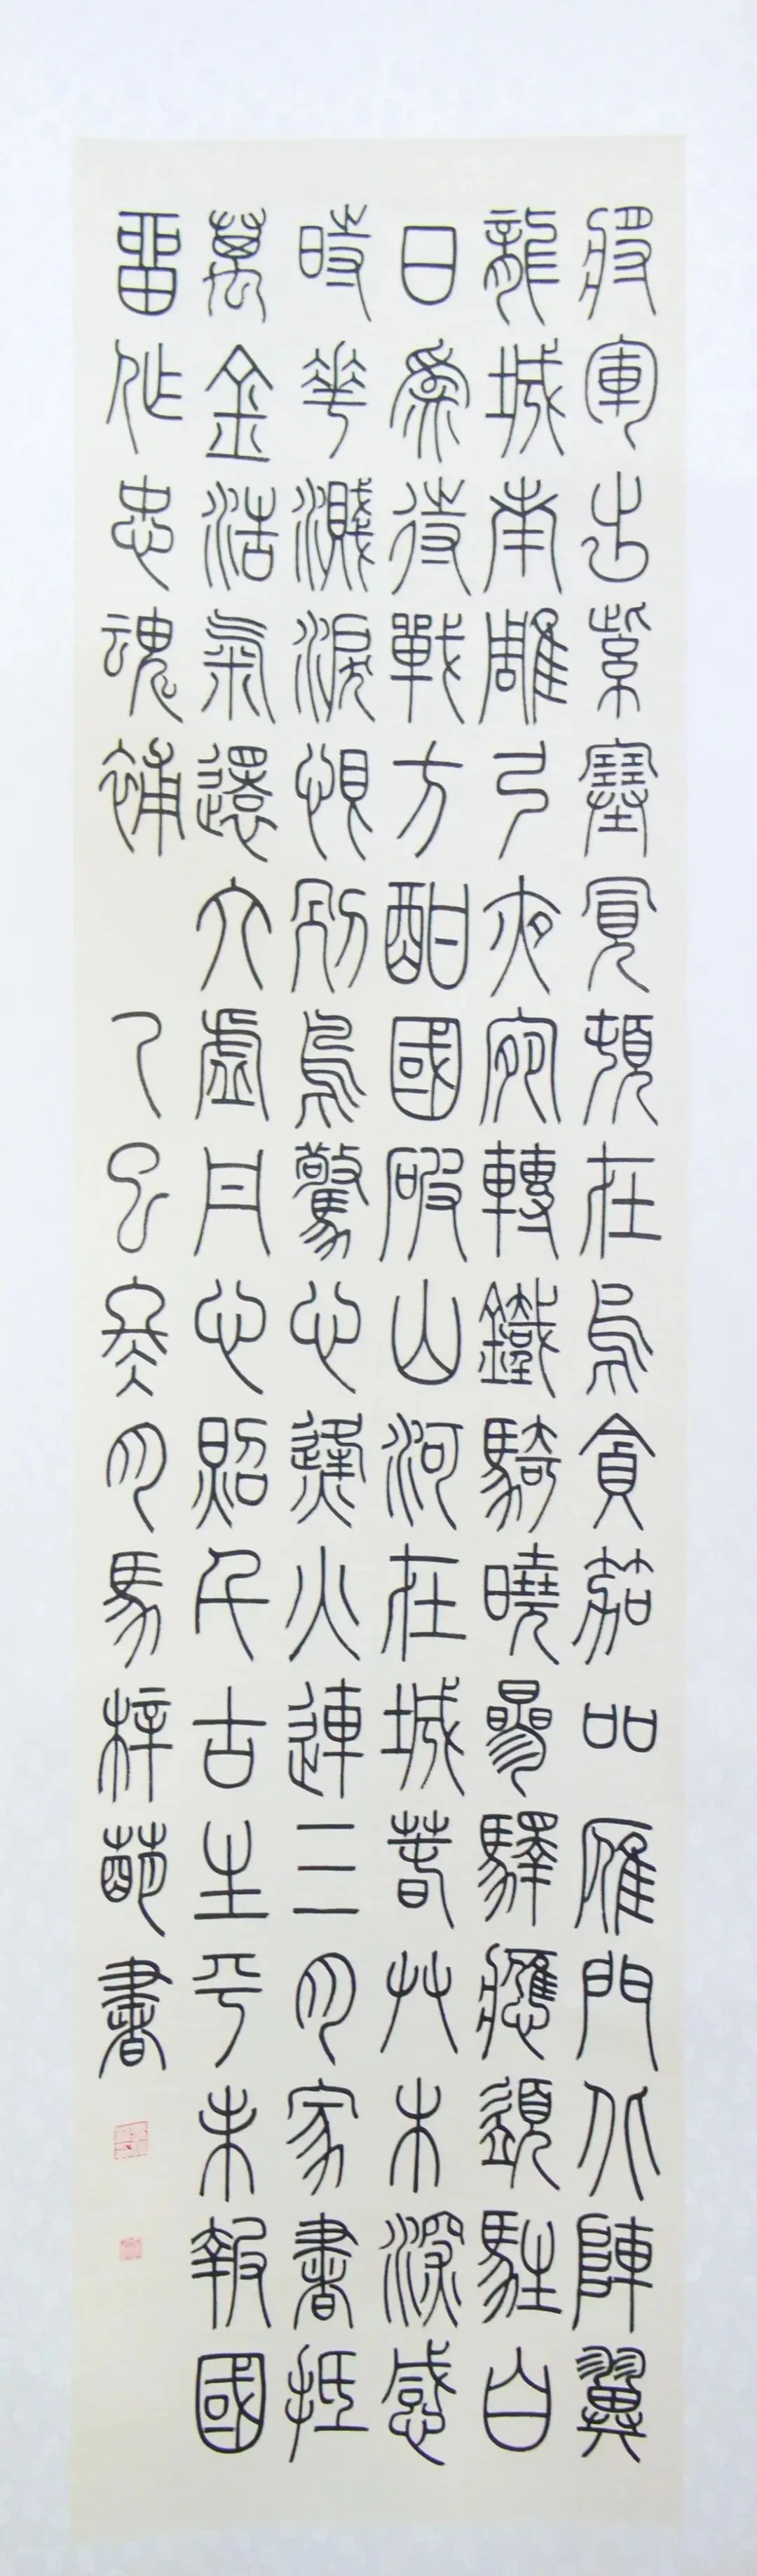 將軍出紫塞冒頓在烏貪笳吅雁門北陣翼
龍城南雕弓夜宛轉鐵騎曉參驔應須駐白
日為待戰方酣國破山河在城春艸木深感
時花濺淚恨別鳥驚心烽火連三月家書抵
萬金浩氣還太虛丹心照千古生平未報國
留作忠魂補 乙巳冬月馬梓萌書